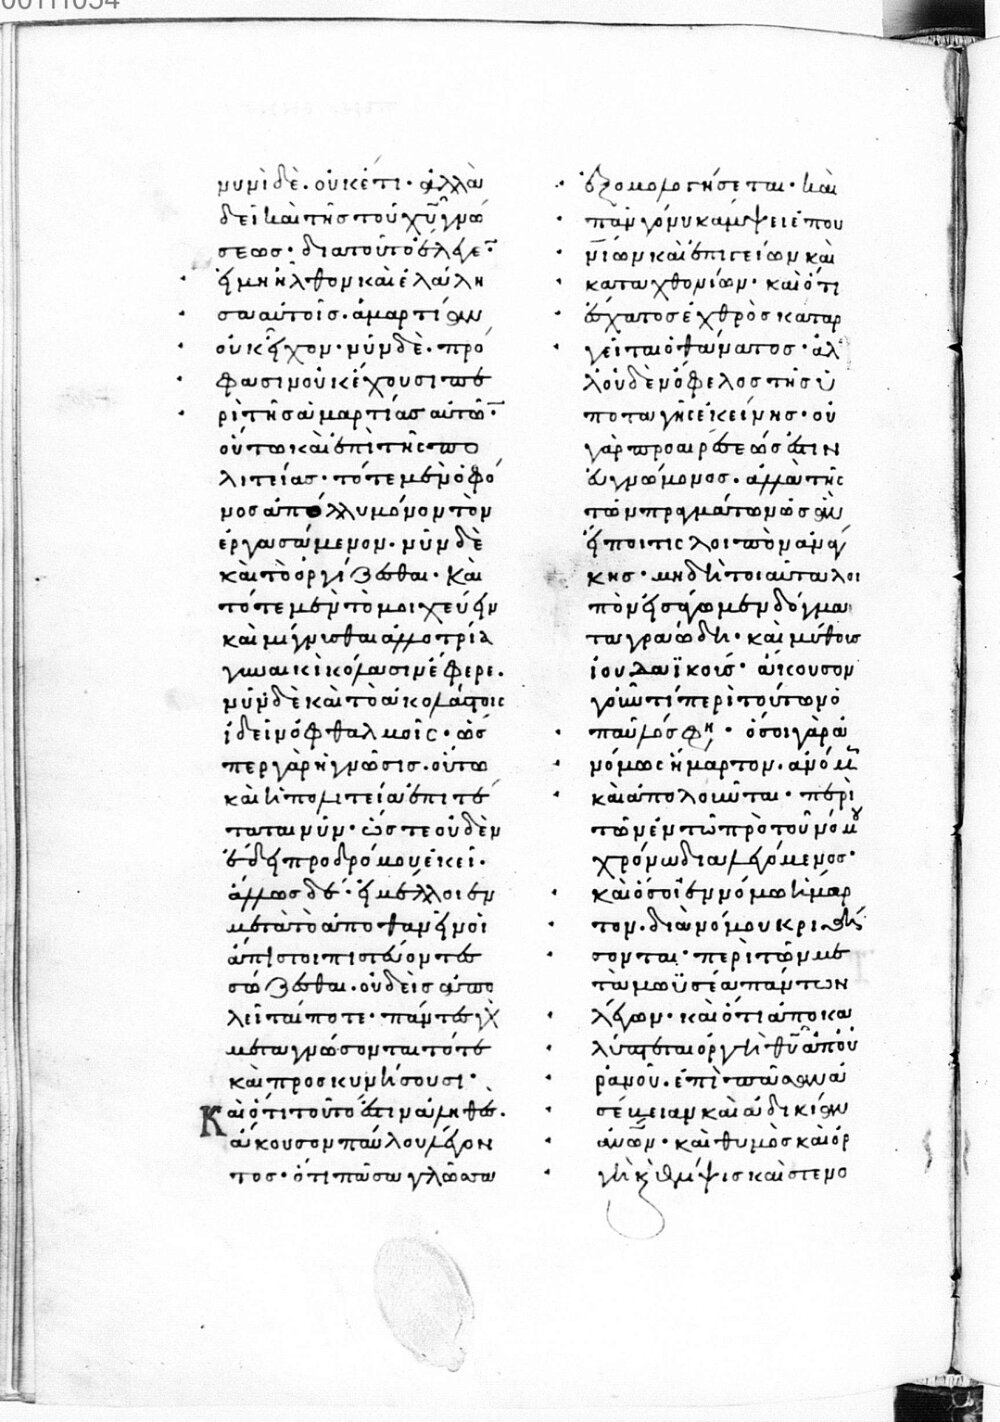 νυνὶ δὲ. οὐκέτι· ἀλλὰ
δεῖ καὶ τῆς τοῦ χῦ γνώ
σεως· διὰ τοῦτο ἔλεγε·
εἰ μὴ ἦλθον καὶ ἐλάλη
σα αὐτοῖς. ἁμαρτίαν
οὐκ εἶχον· νῦν δὲ. πρό
φασιν οὐκ ἔχουσι πε
ρὶ τῆς ἁμαρτίας αὐτῶ·
οὕτω καὶ ἐπὶ τῆς πο
λιτείας· τότε μὲν ὁ φό
νος ἀπόλλυ μόνον τὸν
ἐργασάμενον. νῦν δὲ
καὶ τὸ ὀργίζεσθαι. καὶ
τότε μὲν τὸ μοιχεύειν
καὶ μίγνυσθαι ἀλλοτρίᾳ
γυναικὶ κόλασιν ἔφερε.
νῦν δὲ καὶ τὸ ἀκολάστοις
ἰδεῖν ὀφθαλμοῖς· ὥσ
περ γὰρ ἡ γνῶσις. οὕτω
καὶ ἡ πολιτεία ἐπιτέ
ταται νῦν· ὥστε οὐδὲν
ἔδει προδρόμου ἐκεῖ.
ἄλλως δὲ· εἰ μέλλοιεν
μετὰ τὸ ἀποθανεῖν οἱ
ἄπιστοι πιστεύοντες
σώζεσθαι. οὐδεὶς ἀπο
λεῖταί ποτε· πάντες γὰρ
μεταγνώσονται τότε
καὶ προσκυνήσουσι·
Καὶ ὅτι τοῦτό ἐστιν ἀληθές.
ἄκουσον παύλου λέγον
τος· ὅτι πᾶσα γλῶσσα
ἐξομολογήσεται· καὶ
πᾶν γόνυ κάμψει ἐπου
νίων καὶ ἐπιγείων καὶ
καταχθονίων· καὶ ὅτι
ἔσχατος ἐχθρὸς καταρ
γεῖται ὁ θάνατος· ἀλ
λ' οὐδὲν ὄφελος τῆς ὑ
ποταγῆς ἐκείνης· οὐ
γὰρ προαιρέσεώς ἐστιν
εὐγνώμονος. ἀλλὰ τῆς
τῶν πραγμάτων ὡς ἂν
εἴποι τις λοιπὸν ἀνάγ
κης· μὴ δὴ τοιαῦτα λοι
πὸν εἰσάγωμεν δόγμα
τα γραώδη· καὶ μύθους
ἰουδαϊκούς· ἄκουσον
γοῦν τί περὶ τούτων ὁ
παῦλός φη· ὅσοι γὰρ ἀ
νόμως ἥμαρτον. ἀνόμ
καὶ ἀπολοῦνται· περὶ
τῶν ἐν τῶ πρὸ τοῦ νόμου
χρόνω διαλεγόμενος·
καὶ ὅσοι ἐν νόμω ἥμαρ
τον. διὰ νόμου κριθή
σονται· περὶ τῶν με
τὰ μωϋσέα πάντων
λέγων· καὶ ὅτι ἀποκα
λύπτεται ὀργὴ θῦ ἀπ' οὐ
ρανοῦ. ἐπὶ πᾶσαν ἀ
σέβειαν καὶ ἀδικίαν
ἀνων· καὶ θυμὸς καὶ ὀρ
γὴ κ θλίψις καὶ στενο